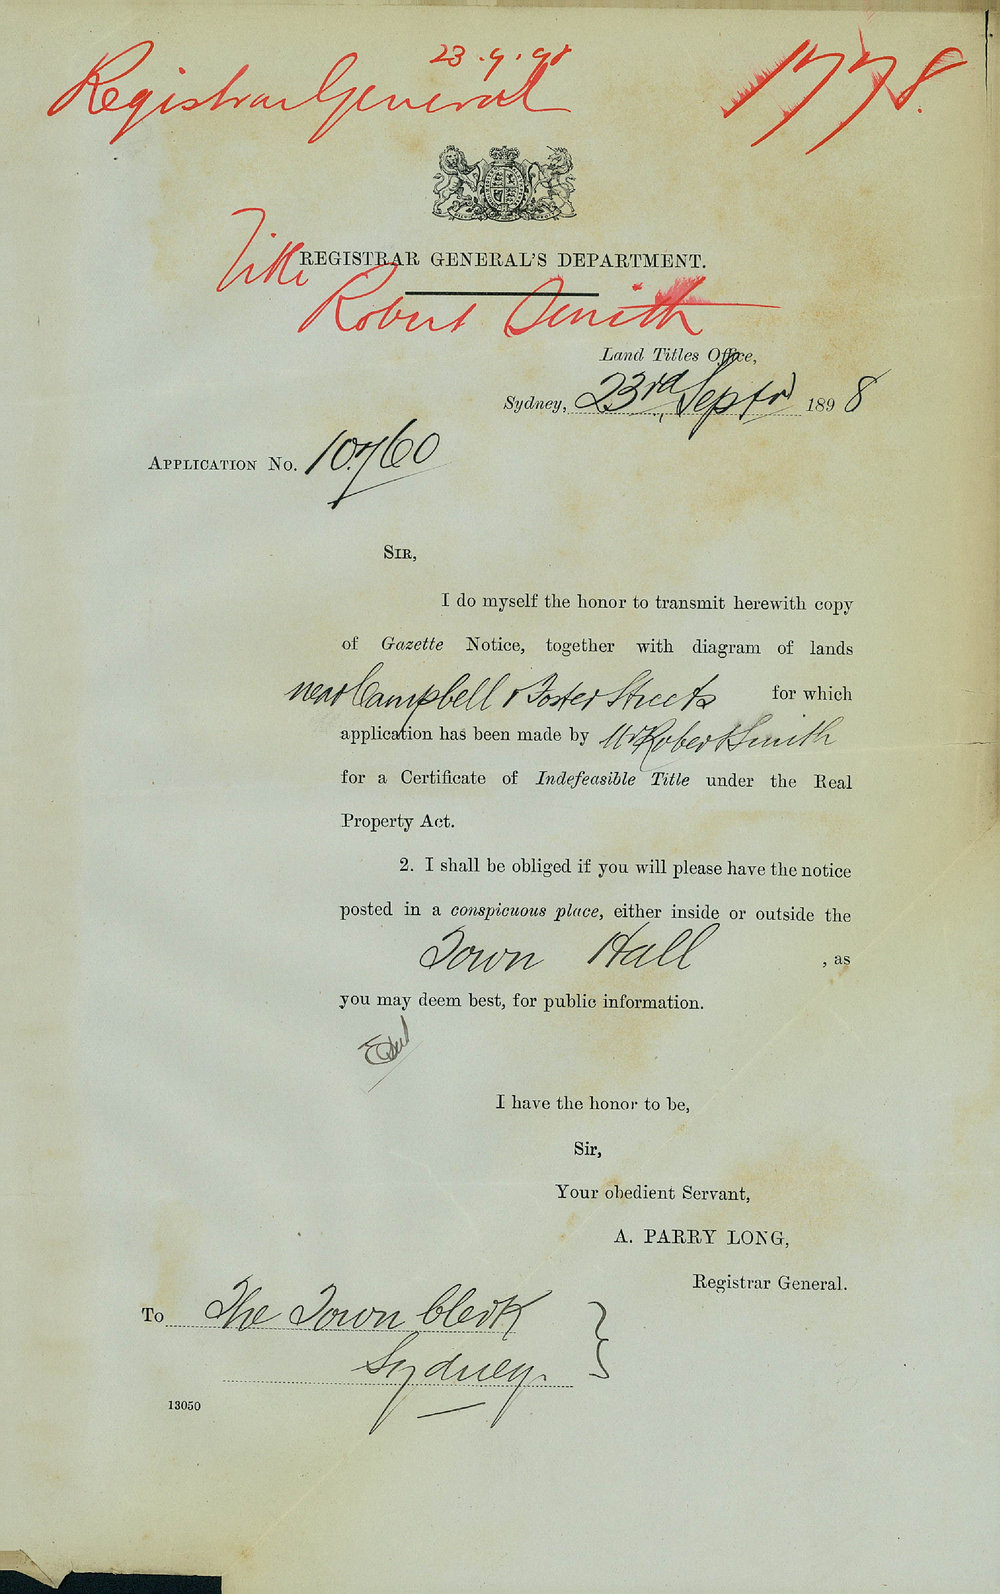 23.9.98
Registrar General
1778.
REGISTRAR GENERAL'S DEPARTMENT.
Title
Robert Smith
Land Titles Office,
Sydney, 23rd Septr 1898
APPLICATION No. 10760
SIR,
I do myself the honor to transmit herewith copy
of Gazette Notice, together with diagram of lands
near Campbell & Foster Streets for which
application has been made by Mr Robert Smith
for a Certificate of Indefeasible Title under the Real
Property Act.
2. I shall be obliged if you will please have the notice
posted in a conspicuous place, either inside or outside the
Town Hall , as
you may deem best, for public information.
I have the honor to be,
Sir,
Your obedient Servant,
A. PARRY LONG,
Registrar General.
To The Town Clerk
Sydney.
13050